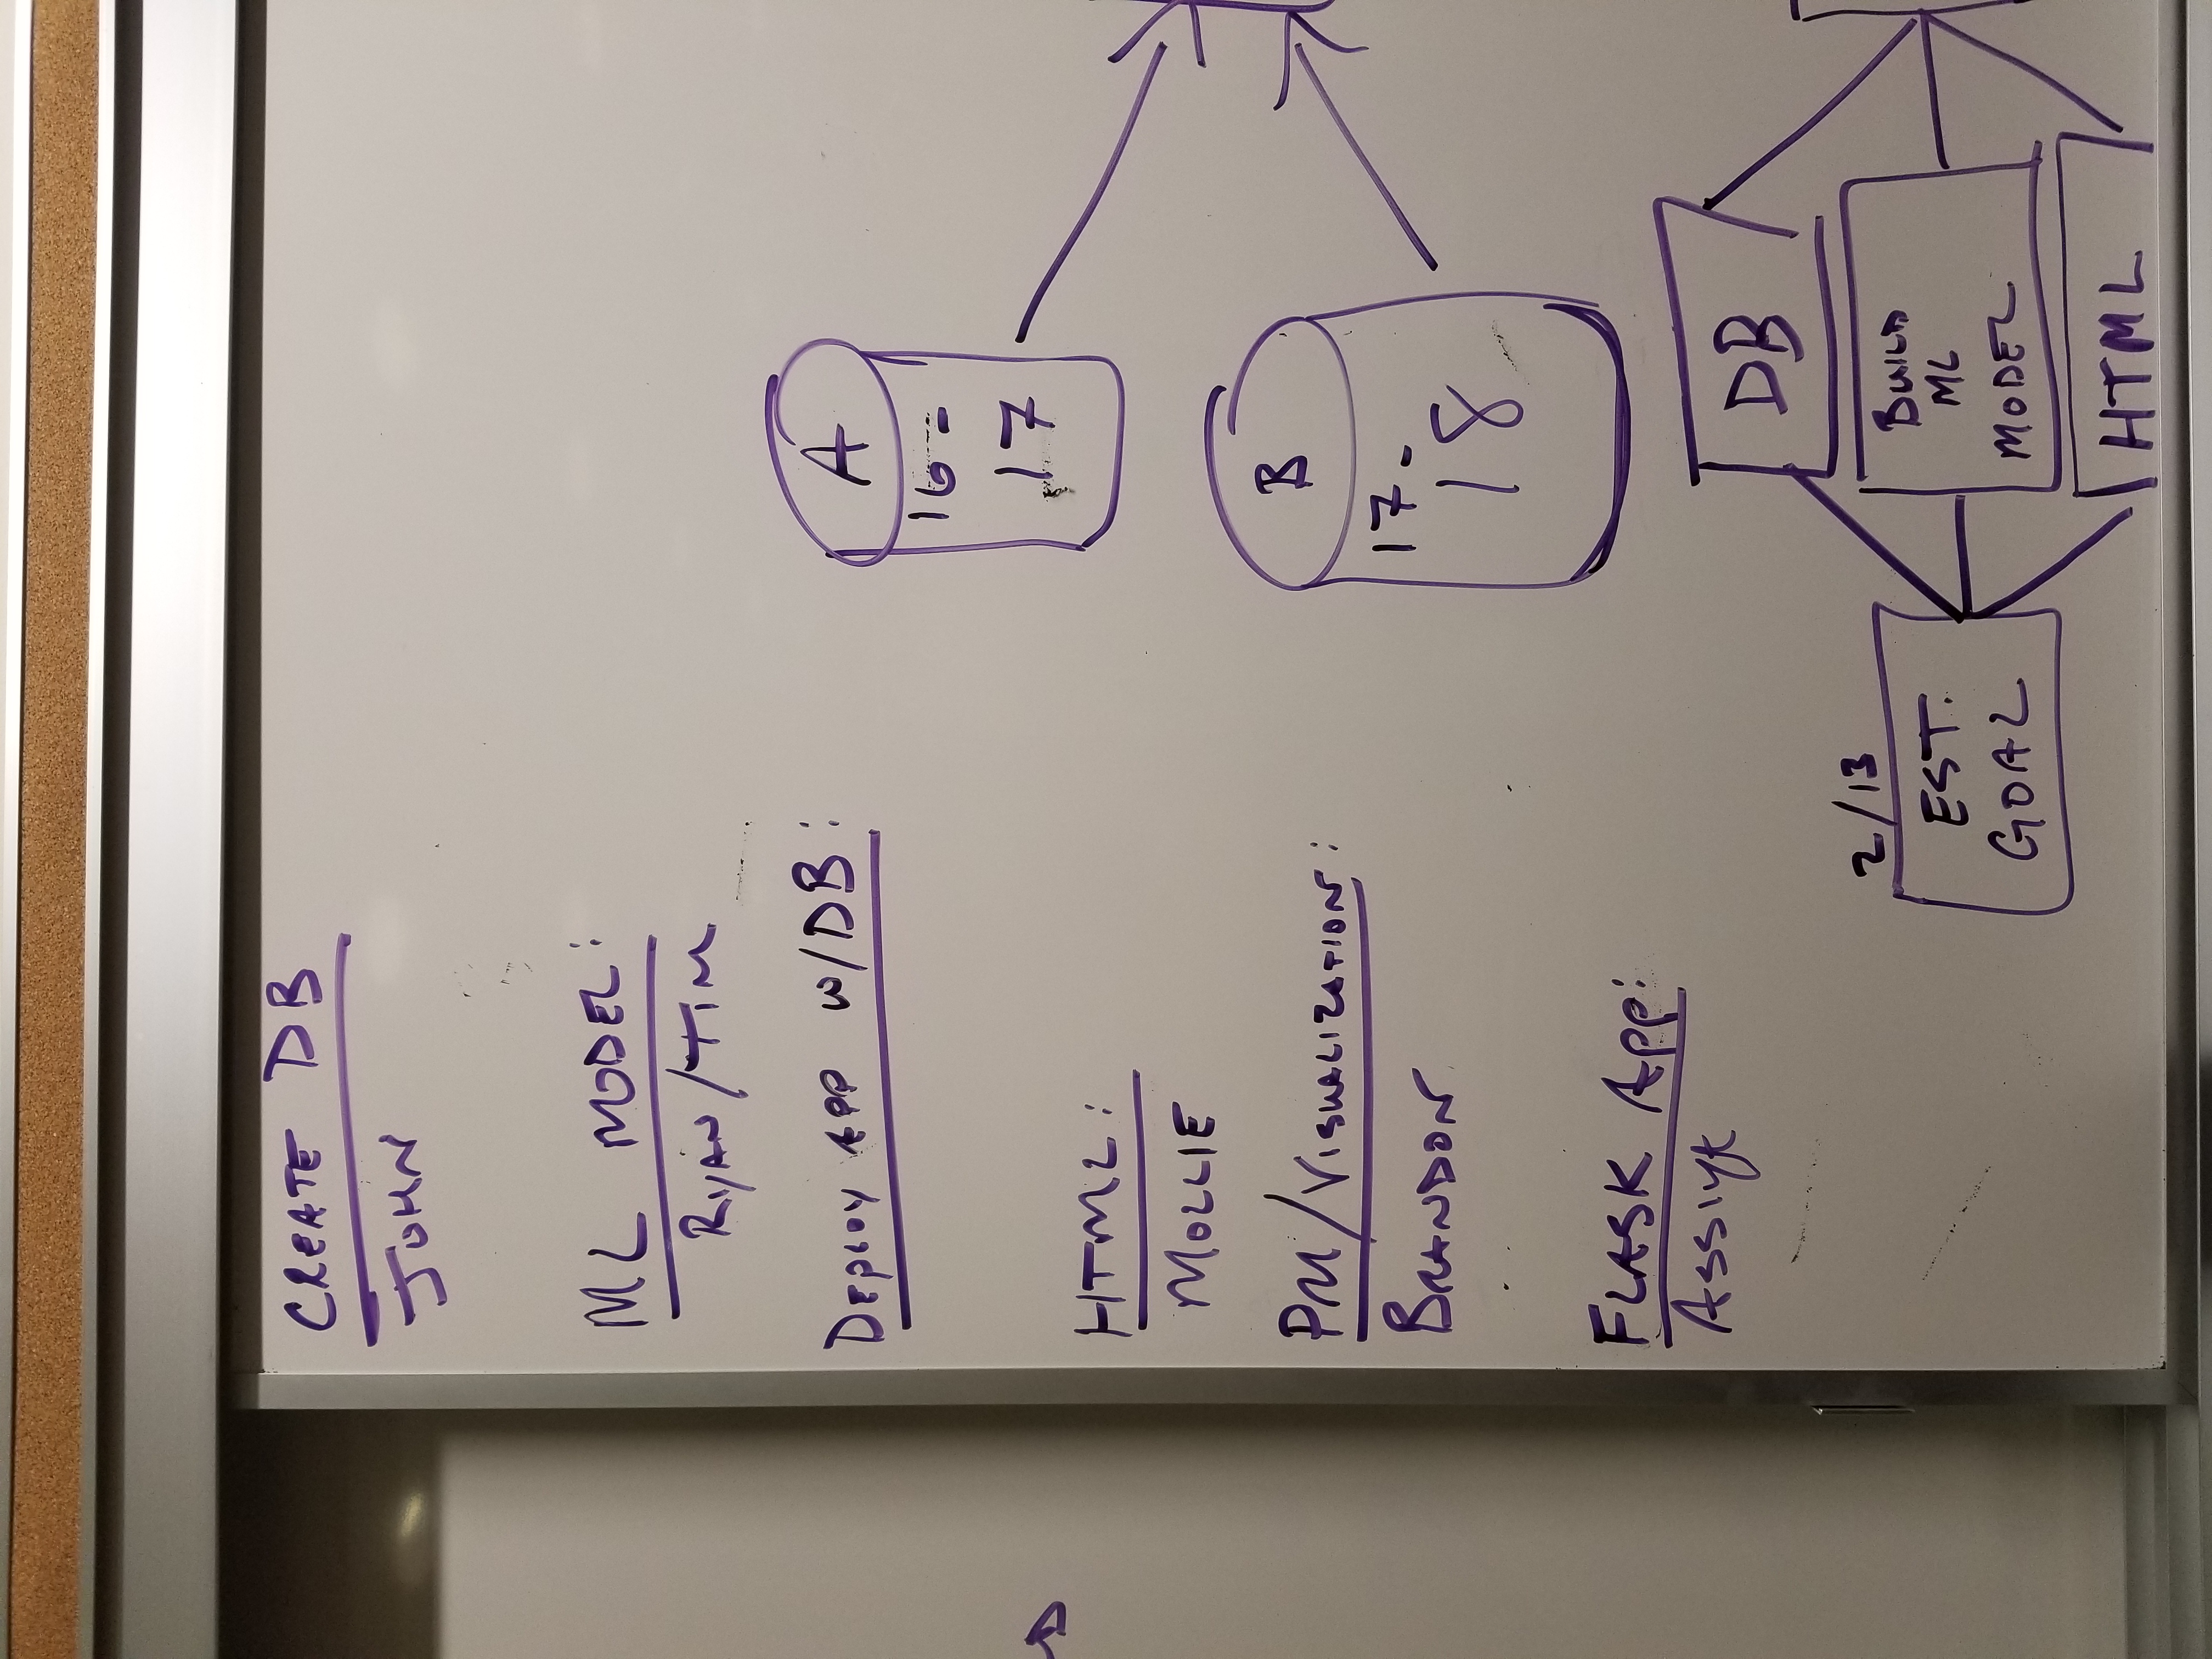 CREATE DB
JOHN
ML MODEL:
RYAN/TIM
DEPLOY APP W/DB:
HTML:
MOLLIE
PM/VISUALIZATION:
BRANDON
FLASK App:
A
16-
17
B
17-
18
DB
2/13
EST.
GOAL
BUILD
ML
MODEL
HTML